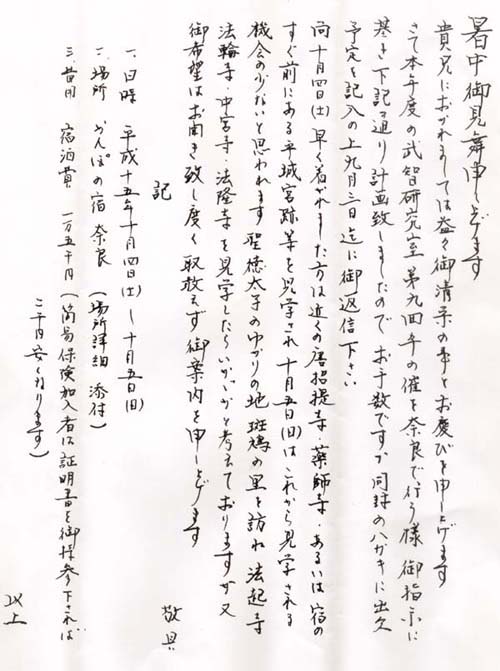 暑中御見舞申し上げます
貴兄におかれましては益々御清栄の事とお慶びを申し上げます
さて本年度の武智研究室第九回 の催を奈良で行う様御指示に
基き下記の通り計画致しましたので お手数ですが同封のハガキに出欠
予定を記入の上九月三日迄に御返信下さい
尚十月四日(土)早く着かれました方は近くの唐招提寺・薬師寺・あるいは宿の
すぐ前にある平城宮跡等を見学され十月五日(日)はこれから見学される
機会の少ないと思われます聖徳太子のゆかりの地 斑鳩の里を訪ね法起寺
法輪寺・中宮寺・法隆寺を見学したらいかゞかと考えておりますが又
御希望はお聞き致し度く取敢えず御案内を申し上げます
敬具
記
一、日時 平成十五年十月四日(土)〜十月五日(日)
二、場所 かんぽの宿 奈良 (場所詳細 添付)
三、費用 宿泊費 一万五千円(簡易保険加入者は証明書を御持参下されば
二千円安くなります)
以上